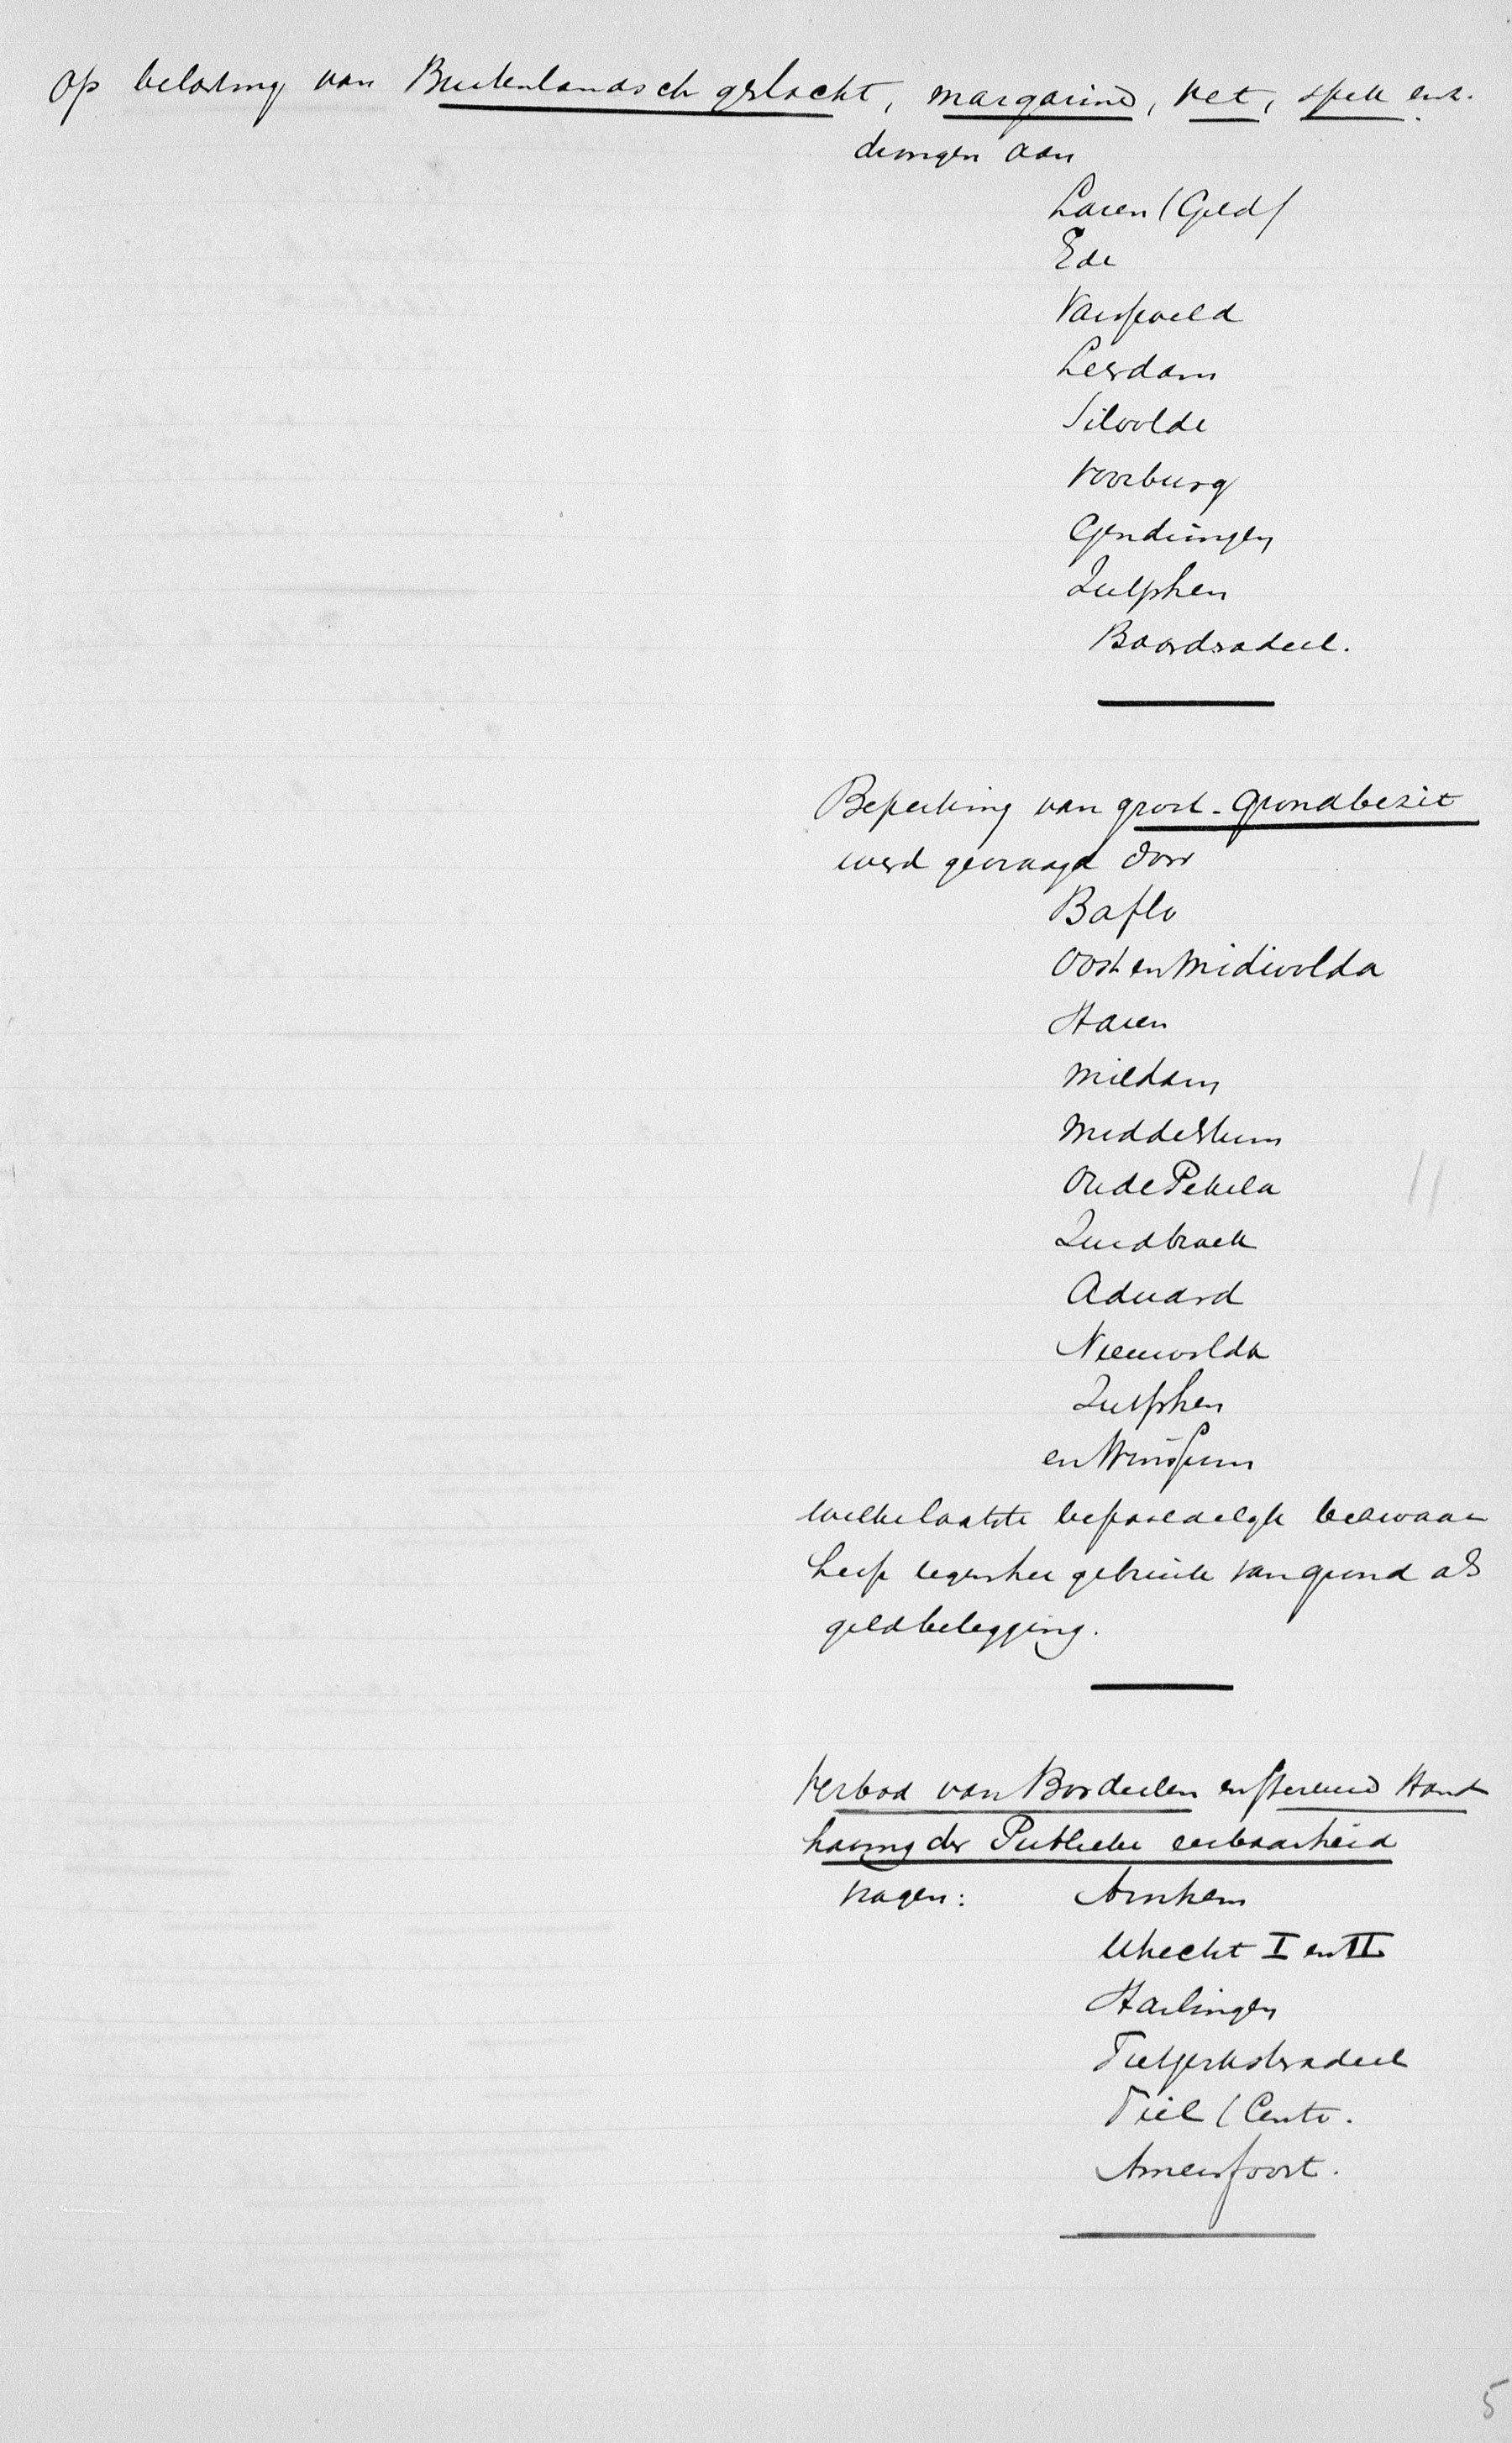 Op belasting van Buitenlandsch geslacht, margarine, vet, spek enz.
dringen aan
Laren (Geld)
Ede
Varsseveld
Leerdam
Silvolde
Voorburg
Gendringen
Zutphen
Baarderadeel.
Beperking van groot-grondbezit
werd gevraagd door
Baflo
Oost en Midwolda
Haren
Mildam
Middelstum
Oude Pekela
Zuidbroek
Aduard
Nieuwolda
Zutphen
en Winsum
welke laatste bepaaldelijk bezwaar
heeft tegen het gebruik van grond als
geldbelegging.
Verbod van Bordeelen en strenge Hand
having der Publieke eerbaarheid
vragen: Arnhem
Utrecht I en II
Harlingen
Tietjerksteradeel
Tiel (Centr.
Amersfoort.
5